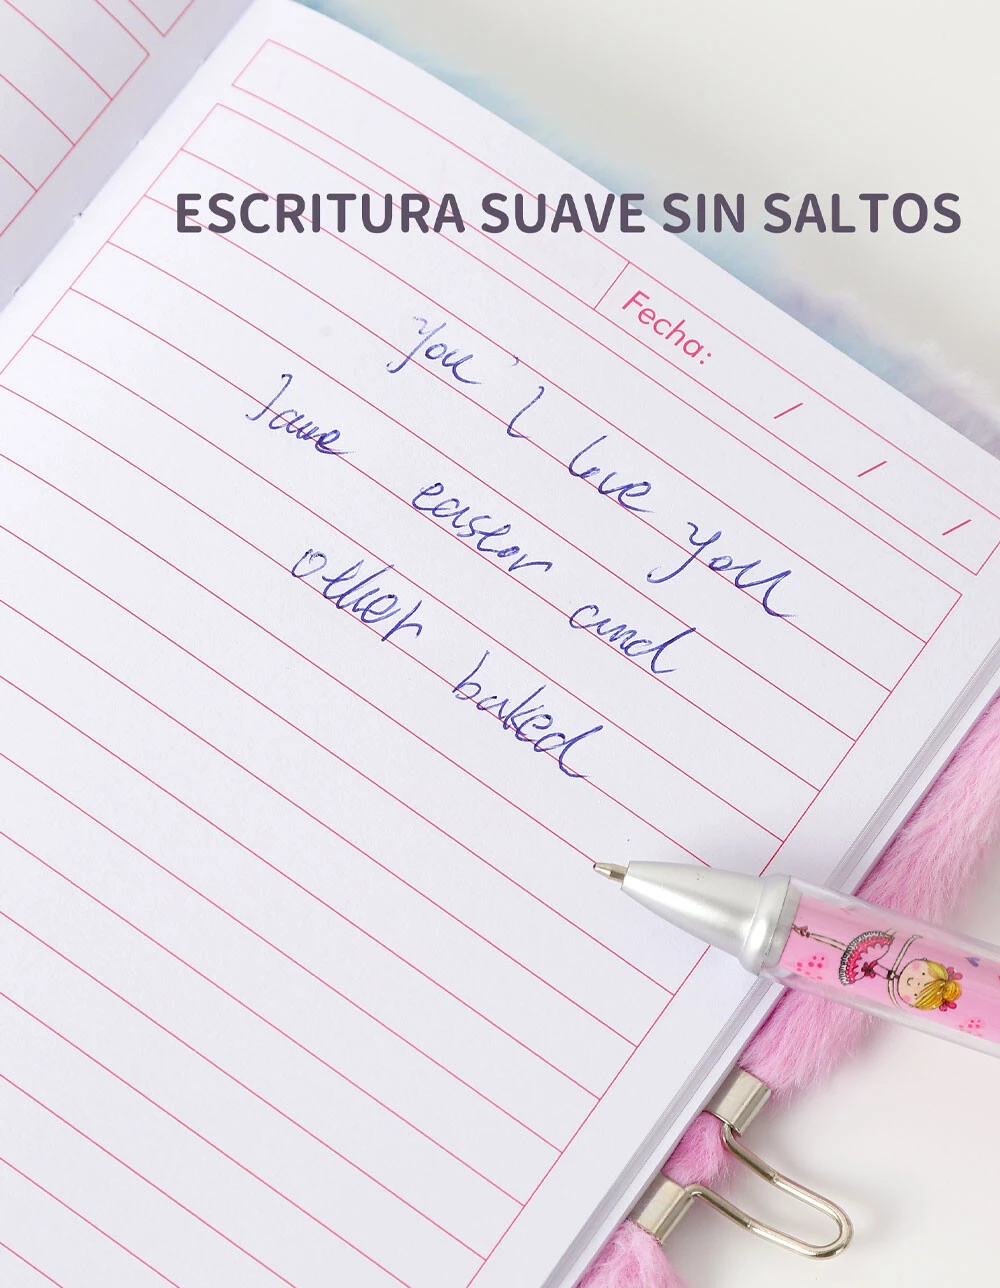 ESCRITURA SUAVE SIN SALTOS
Fecha: / / /
you' I love you
easter and
other baked